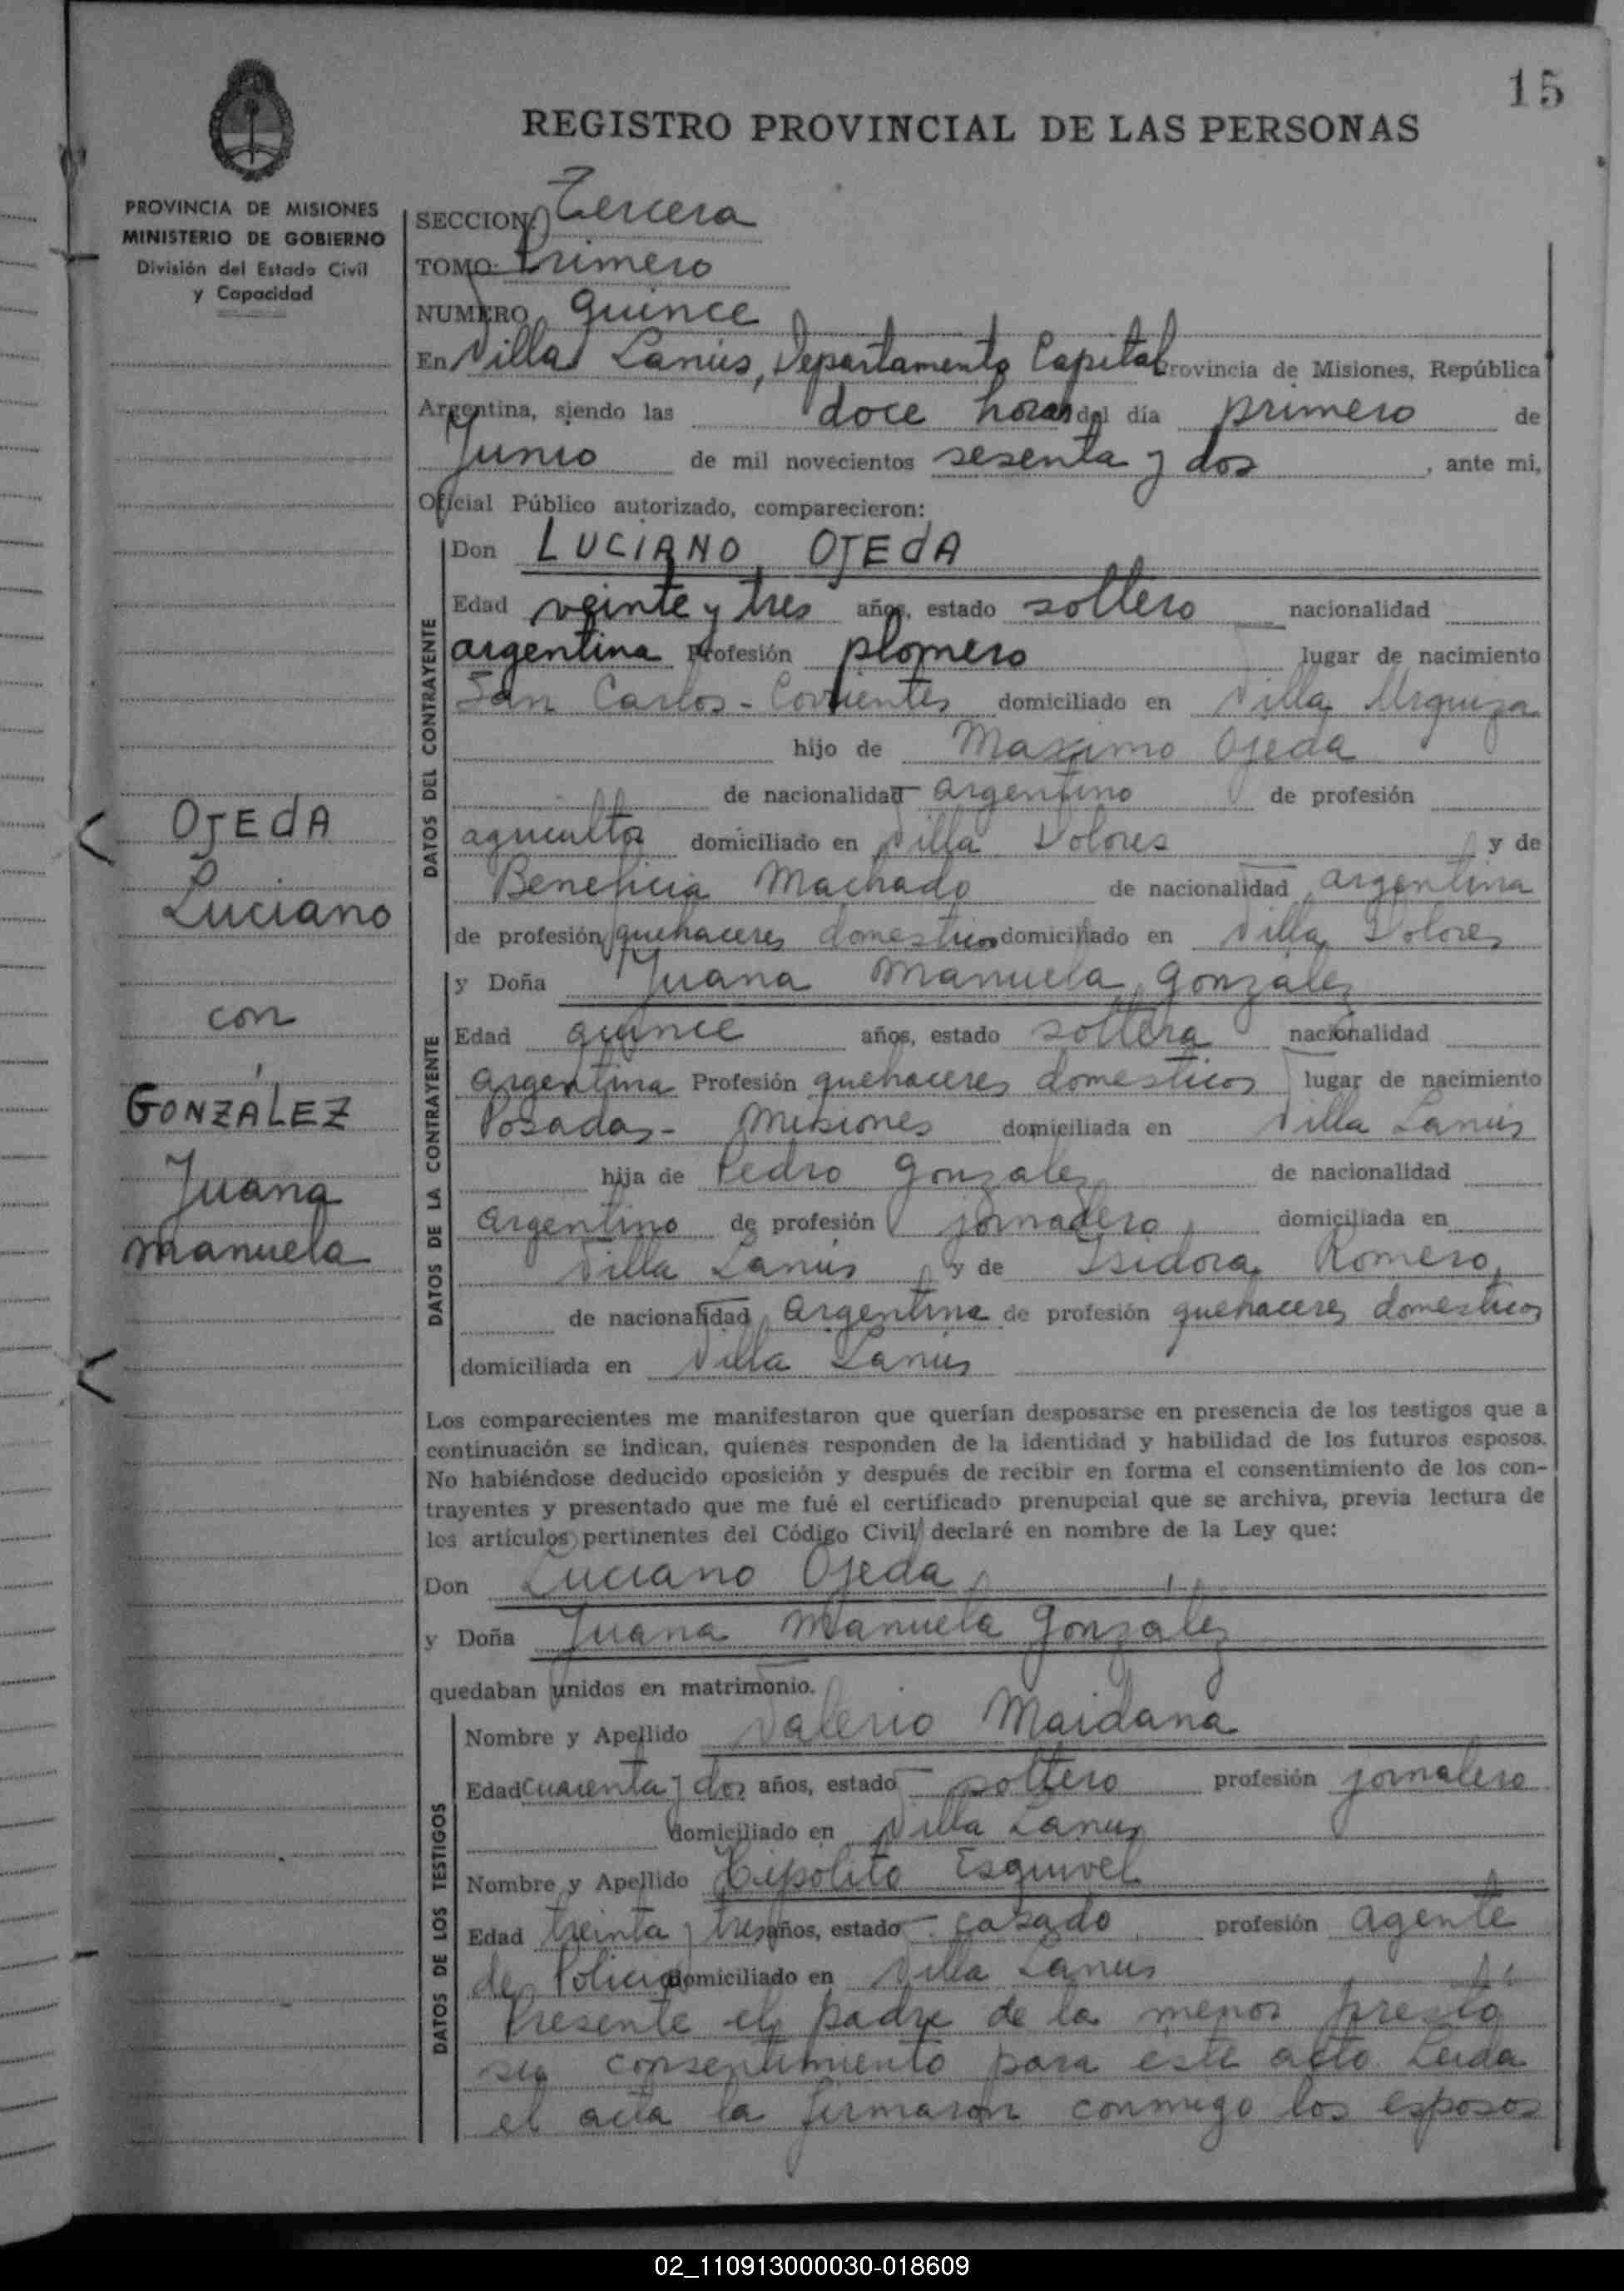 15
REGISTRO PROVINCIAL DE LAS PERSONAS
PROVINCIA DE MISIONES
MINISTERIO DE GOBIERNO
División del Estado Civil
y Capacidad
SECCION Tercera
TOMO Primero
NUMERO quince
En Villa Lanús, Departamento Capital Provincia de Misiones, República
Argentina, siendo las doce horas del día primero de
Junio de mil novecientos sesenta y dos, ante mi,
Oficial Público autorizado, comparecieron:
DATOS DEL CONTRAYENTE
Don LUCIANO OJEdA
Edad veinte y tres años, estado soltero nacionalidad
argentina Profesión plomero lugar de nacimiento
San Carlos - Corrientes domiciliado en Villa Urquiza
hijo de Maximo Ojeda
de nacionalidad argentino de profesión
agricultor domiciliado en Villa Dolores y de
Beneficia Machado de nacionalidad argentina
de profesión quehaceres domesticos domiciliado en Villa Dolores
OJEdA
Luciano
con
GONZÁLEZ
Juana
Manuela
DATOS DE LA CONTRAYENTE
y Doña Juana Manuela Gonzalez
Edad quince años, estado soltera nacionalidad
argentina Profesión quehaceres domesticos lugar de nacimiento
Posadas - Misiones domiciliada en Villa Lanús
hija de Pedro Gonzalez de nacionalidad
argentino de profesión jornalero domiciliada en
Villa Lanús y de Isidora Romero,
de nacionalidad argentina de profesión quehaceres domesticos
domiciliada en Villa Lanús
Los comparecientes me manifestaron que querían desposarse en presencia de los testigos que a
continuación se indican, quienes responden de la identidad y habilidad de los futuros esposos.
No habiéndose deducido oposición y después de recibir en forma el consentimiento de los con-
trayentes y presentado que me fué el certificado prenupcial que se archiva, previa lectura de
los artículos pertinentes del Código Civil declaré en nombre de la Ley que:
Don Luciano Ojeda
y Doña Juana Manuela González
quedaban unidos en matrimonio.
DATOS DE LOS TESTIGOS
Nombre y Apellido Valerio Maidana
Edad cuarenta y dos años, estado soltero profesión jornalero
domiciliado en Villa Lanus
Nombre y Apellido Hipolito Esquivel
Edad treinta y tres años, estado casado profesión agente
de Policia domiciliado en Villa Lanus
Presente el padre de la menor prestó
su consentimiento para este acto. Leida
el acta la firmaron conmigo los esposos
02_110913000030-018609